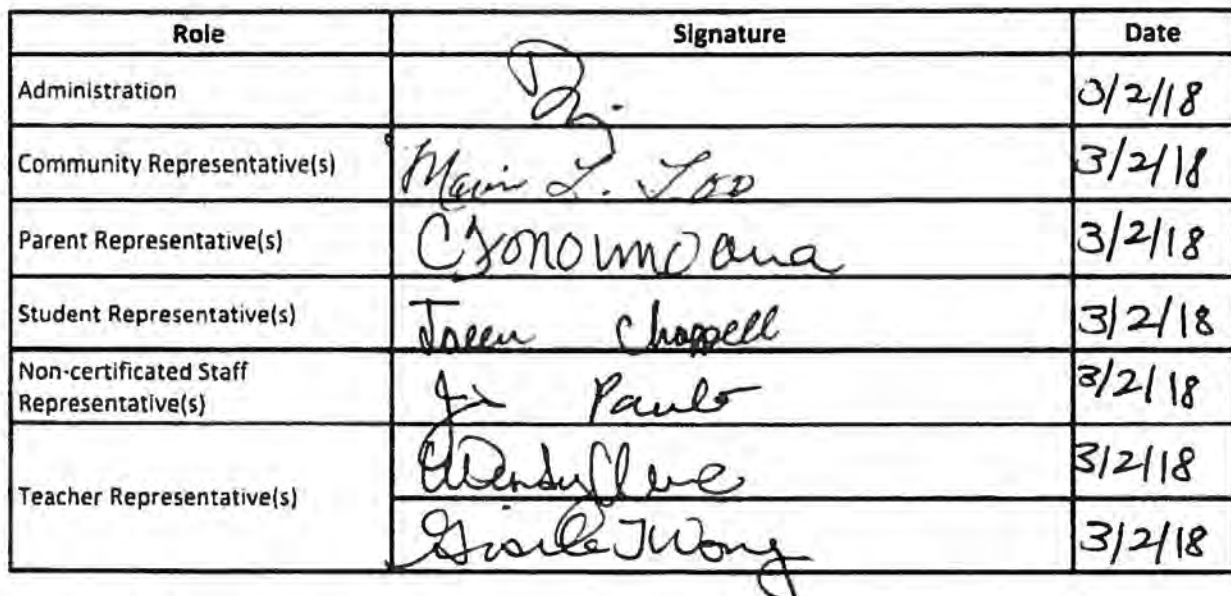 Role Signature Date
Administration 3/2/18
Community Representative(s) L. 3/2/18
Parent Representative(s) 3/2/18
Student Representative(s) Chappell 3/2/18
Non-certificated Staff
Representative(s) Paulo 3/2/18
Teacher Representative(s)
Wendy 3/2/18
Gisele J Wong 3/2/18